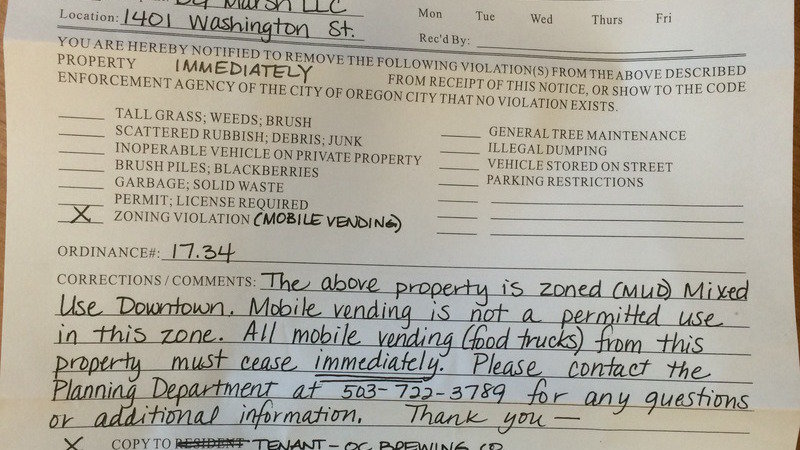 Marsh LLC
Location: 1401 Washington St.
Mon Tue Wed Thurs Fri
Rec'd By:
YOU ARE HEREBY NOTIFIED TO REMOVE THE FOLLOWING VIOLATION(S) FROM THE ABOVE DESCRIBED
PROPERTY IMMEDIATELY FROM RECEIPT OF THIS NOTICE, OR SHOW TO THE CODE
ENFORCEMENT AGENCY OF THE CITY OF OREGON CITY THAT NO VIOLATION EXISTS.
TALL GRASS; WEEDS; BRUSH
SCATTERED RUBBISH; DEBRIS; JUNK
INOPERABLE VEHICLE ON PRIVATE PROPERTY
BRUSH PILES; BLACKBERRIES
GARBAGE; SOLID WASTE
PERMIT; LICENSE REQUIRED
X ZONING VIOLATION (MOBILE VENDING)
GENERAL TREE MAINTENANCE
ILLEGAL DUMPING
VEHICLE STORED ON STREET
PARKING RESTRICTIONS
ORDINANCE#: 17.34
CORRECTIONS / COMMENTS: The above property is zoned (MUD) Mixed
Use Downtown. Mobile vending is not a permitted use
in this zone. All mobile vending (food trucks) from this
property must cease immediately. Please contact the
Planning Department at 503-722-3789 for any questions
or additional information. Thank you —
X COPY TO RESIDENT TENANT - OC BREWING CO